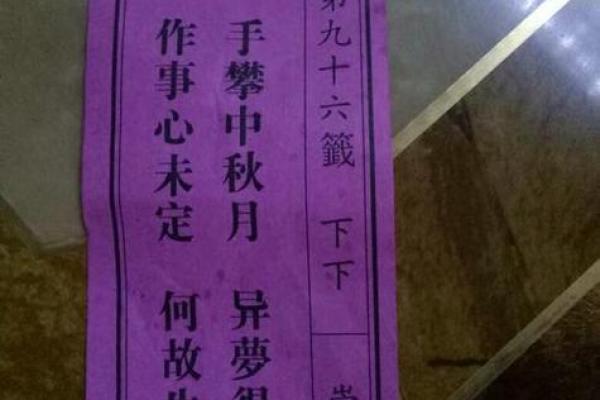 第九十六籤 下下
手攀中秋月 异夢
作事心未定 何故